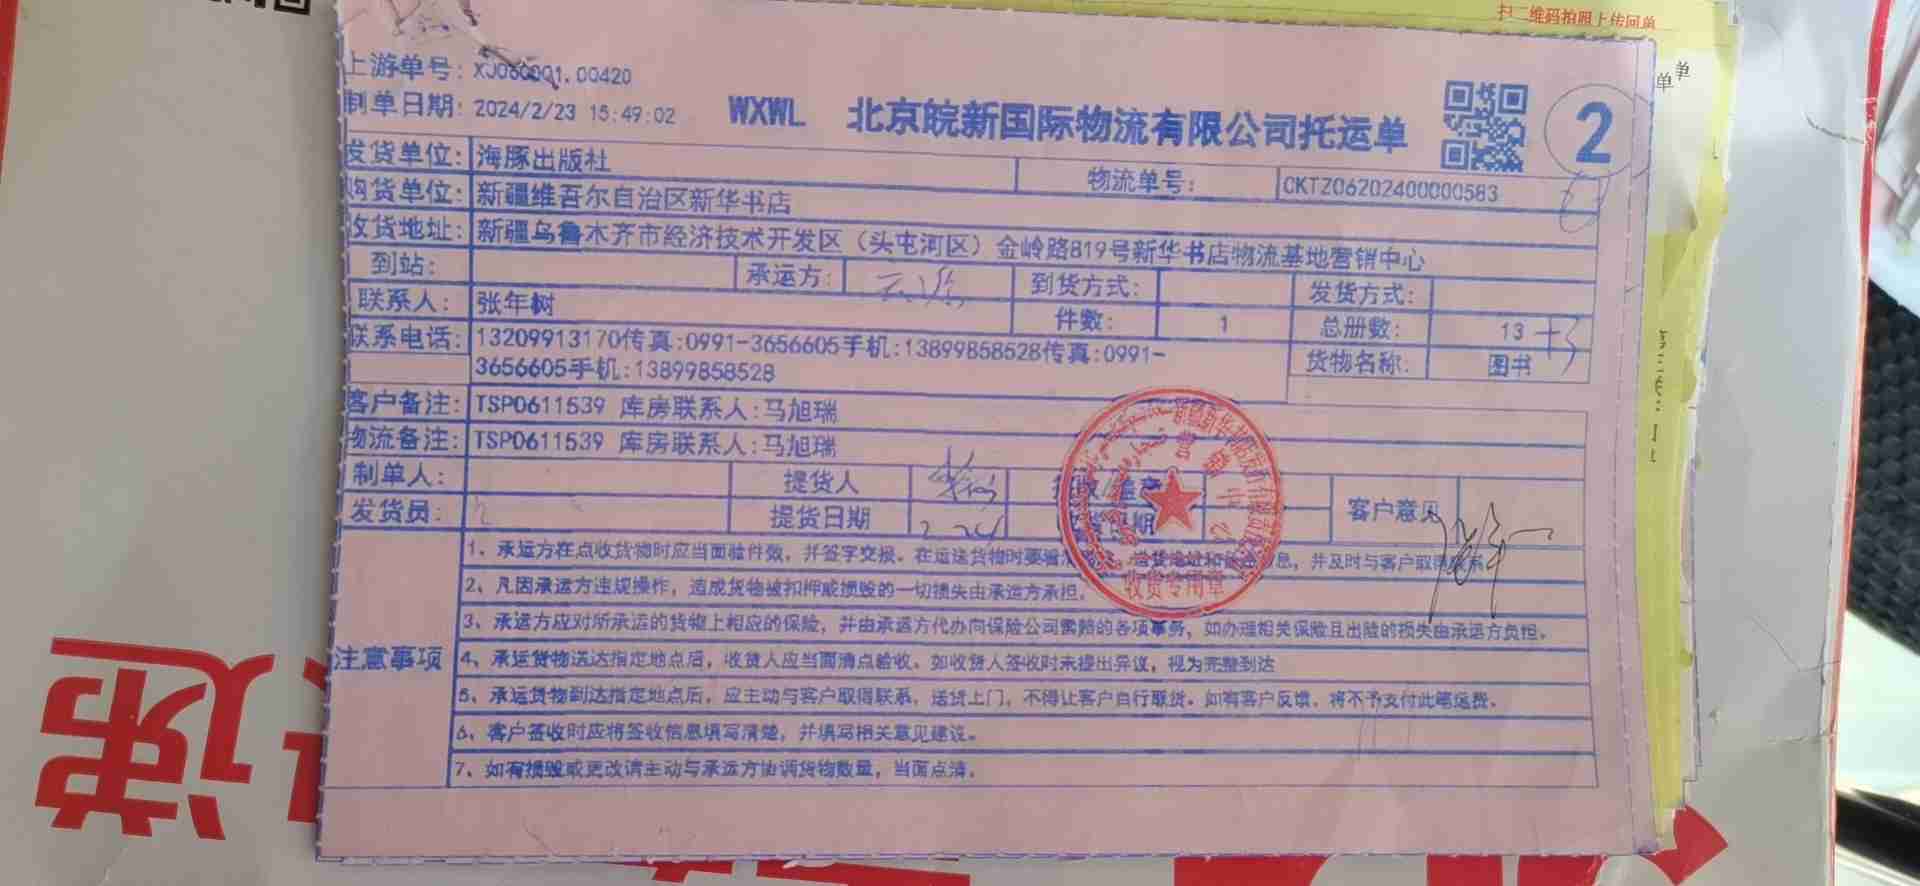 扫二维码拍照上传回单
上游单号: XJ060001.00420
制单日期: 2024/2/23 15:49:02
WXWL 北京皖新国际物流有限公司托运单
2
发货单位: 海豚出版社
物流单号: CKTZ06202400000583
购货单位: 新疆维吾尔自治区新华书店
收货地址: 新疆乌鲁木齐市经济技术开发区（头屯河区）金岭路819号新华书店物流基地营销中心
到站: 承运方: 到货方式: 发货方式:
联系人: 张年树 件数: 1 总册数: 13 +3
联系电话: 13209913170传真:0991-3656605手机:13899858528传真:0991-
3656605手机:13899858528
货物名称: 图书
客户备注: TSP0611539 库房联系人:马旭瑞
物流备注: TSP0611539 库房联系人:马旭瑞
制单人: 提货人
发货员: 提货日期 2.24
客户意见
收货专用章
注意事项
1、承运方在点收货物时应当面验件数，并签字交接。在运送货物时要看清 息，并及时与客户取得联系
2、凡因承运方违规操作，造成货物被扣押或损毁的一切损失由承运方承担。
3、承运方应对所承运的货物上相应的保险，并由承运方代办向保险公司索赔的各项事务，如办理相关保险且出险的损失由承运方负担。
4、承运货物送达指定地点后，收货人应当面清点验收。如收货人签收时未提出异议，视为完整到达
5、承运货物到达指定地点后，应主动与客户取得联系，送货上门，不得让客户自行取货。如有客户反馈，将不予支付此笔运费。
6、客户签收时应将签收信息填写清楚，并填写相关意见建议。
7、如有损毁或更改请主动与承运方协调货物数量，当面点清。
递